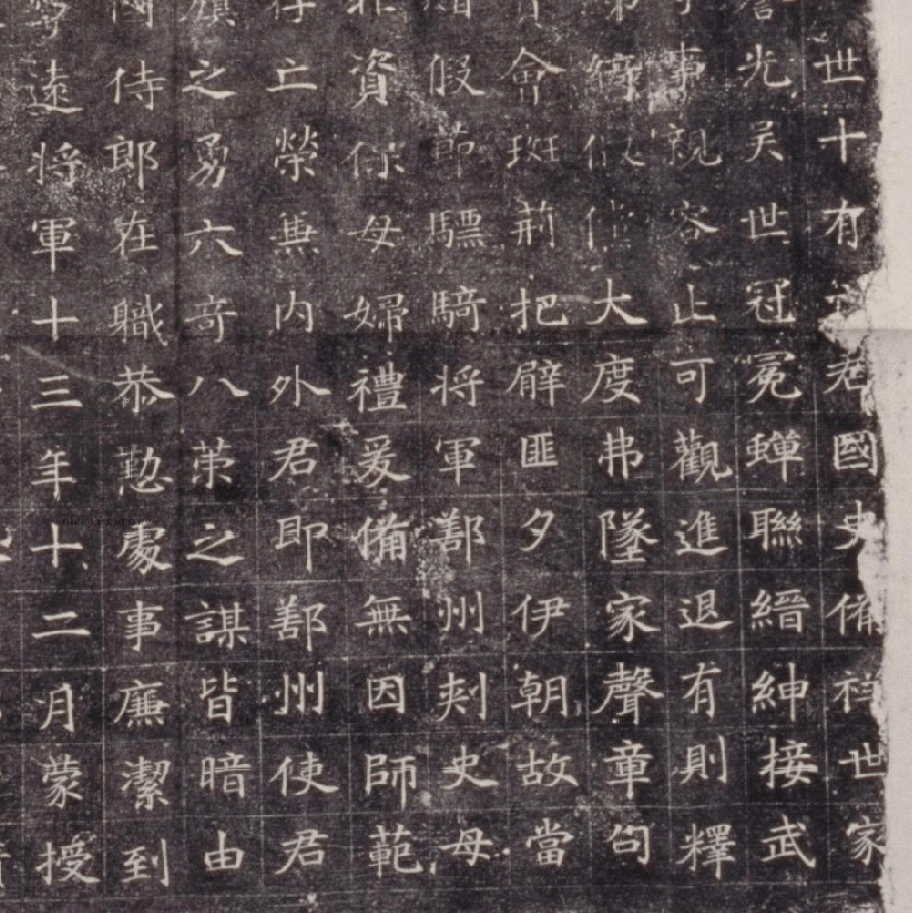 世十有君國史備祥世家
光吴世冠冕蟬聯縉紳接武
事親容止可觀進退有則釋
大度弗墜家聲章句
會斑荊把臂匪夕伊朝故當
假節驃騎将軍鄯州刾史母
資保母婦禮爰備無因師範
存亡榮無内外君即鄯州使君
之勇六奇八策之謀皆暗由
國侍郎在職恭懃處事廉潔到
遠将軍十三年十二月蒙授